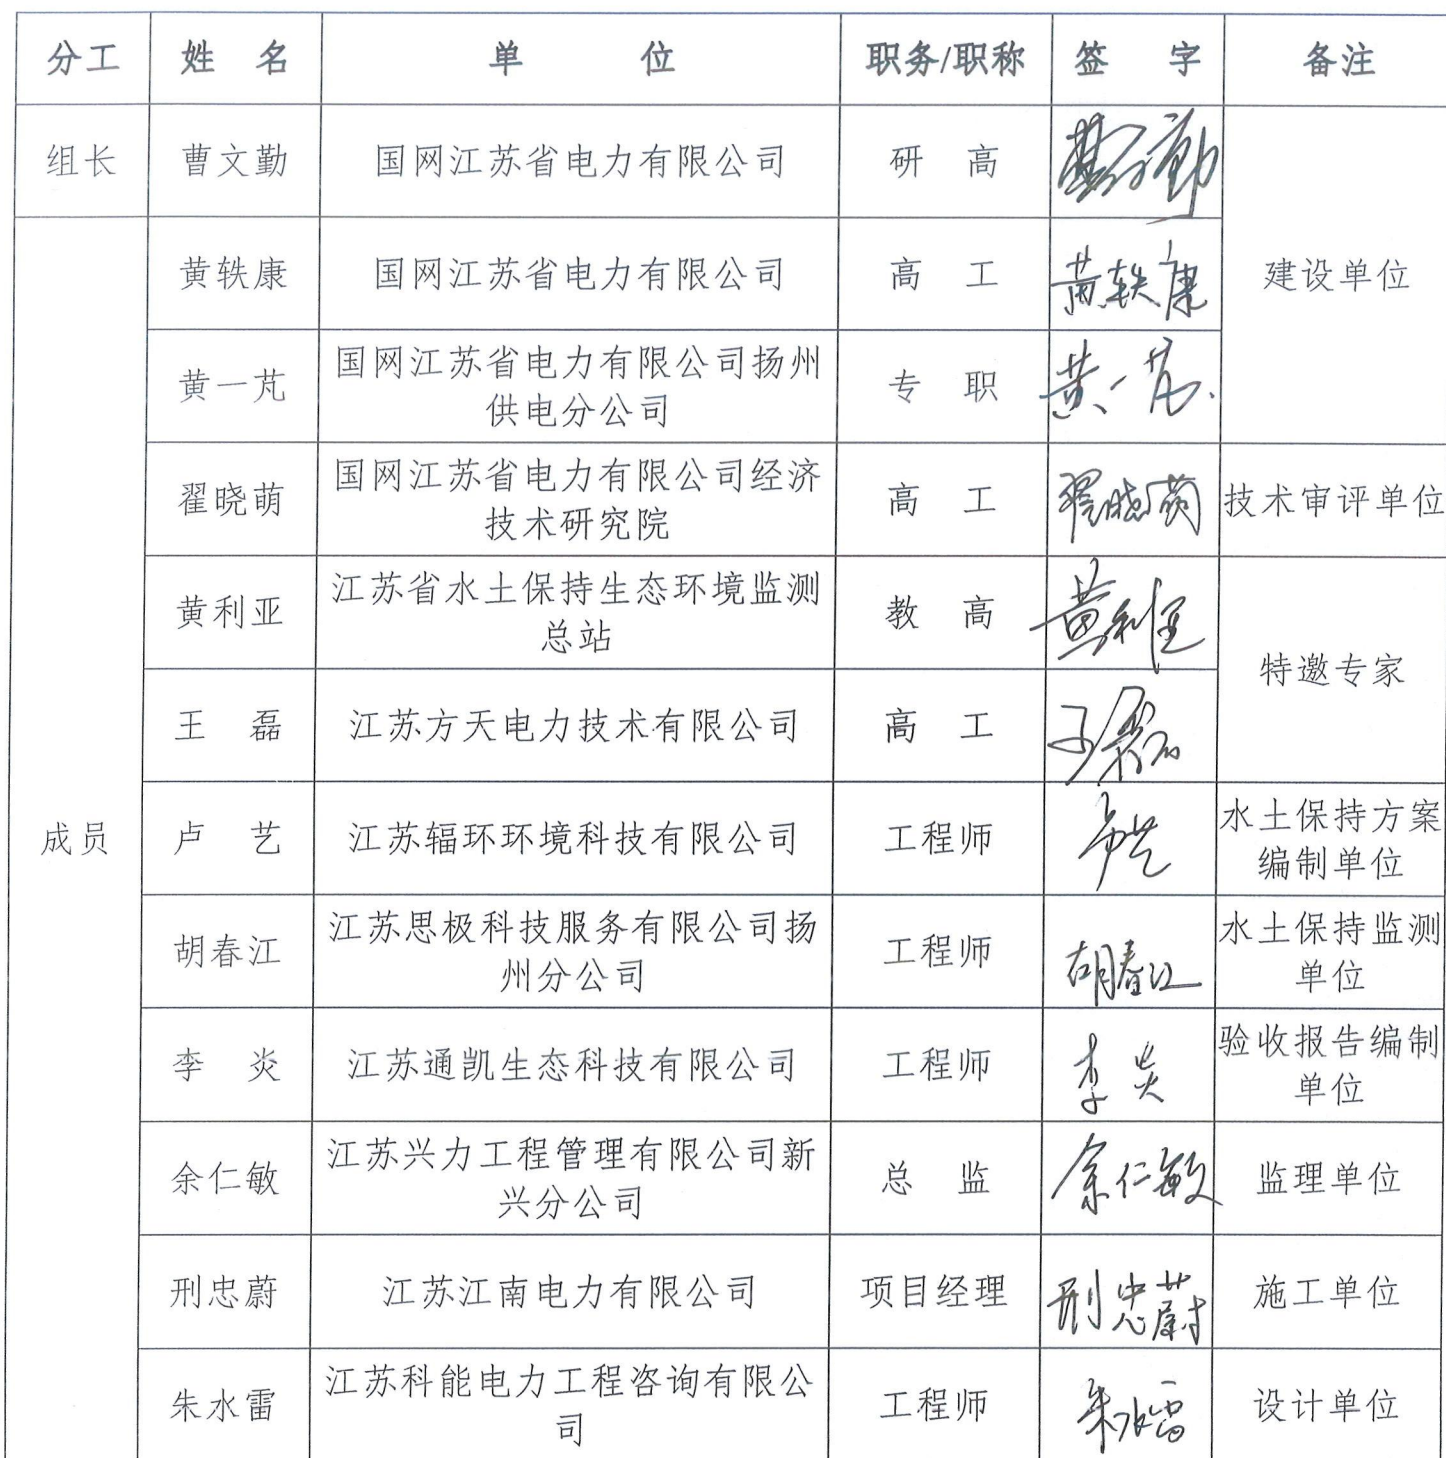 分工 姓 名 单 位 职务/职称 签 字 备注
组长 曹文勤 国网江苏省电力有限公司 研 高 曹文勤
黄轶康 国网江苏省电力有限公司 高 工 黄轶康 建设单位
黄一芃 国网江苏省电力有限公司扬州
供电分公司 专 职 黄一芃
翟晓萌 国网江苏省电力有限公司经济
技术研究院 高 工 翟晓萌 技术审评单位
黄利亚 江苏省水土保持生态环境监测
总站 教 高 黄利亚
特邀专家
王 磊 江苏方天电力技术有限公司 高 工 王磊
成员 卢 艺 江苏辐环环境科技有限公司 工程师 卢艺 水土保持方案
编制单位
胡春江 江苏思极科技服务有限公司扬
州分公司 工程师 胡春江 水土保持监测
单位
李 炎 江苏通凯生态科技有限公司 工程师 李炎 验收报告编制
单位
余仁敏 江苏兴力工程管理有限公司新
兴分公司 总 监 余仁敏 监理单位
刑忠蔚 江苏江南电力有限公司 项目经理 刑忠蔚 施工单位
朱水雷 江苏科能电力工程咨询有限公
司 工程师 朱水雷 设计单位